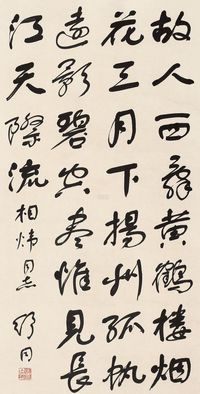 故人西辞黄鶴樓烟
花三月下揚州孤帆
遠影碧空尽惟見長
江天際流 相炜同志 舒同